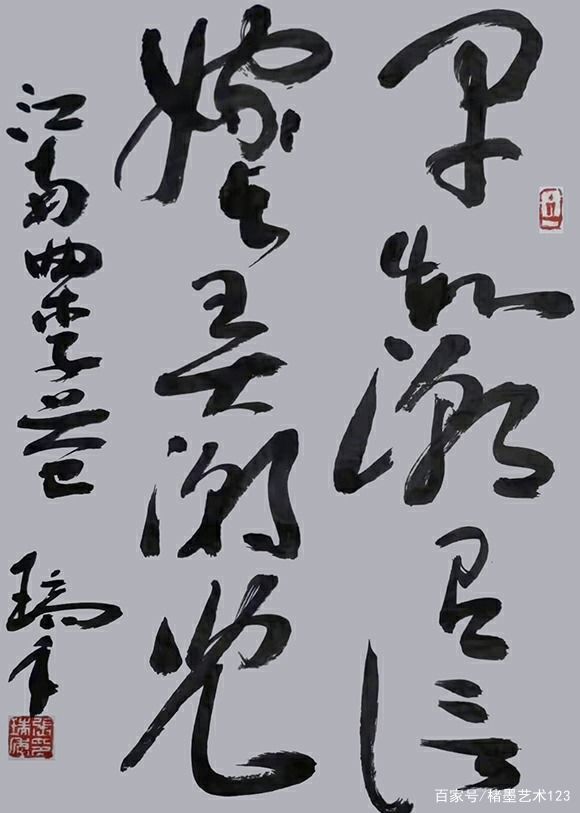 早知潮有信
嫁与弄潮兒
江南曲李益
瑞年
百家号/楮墨艺术123